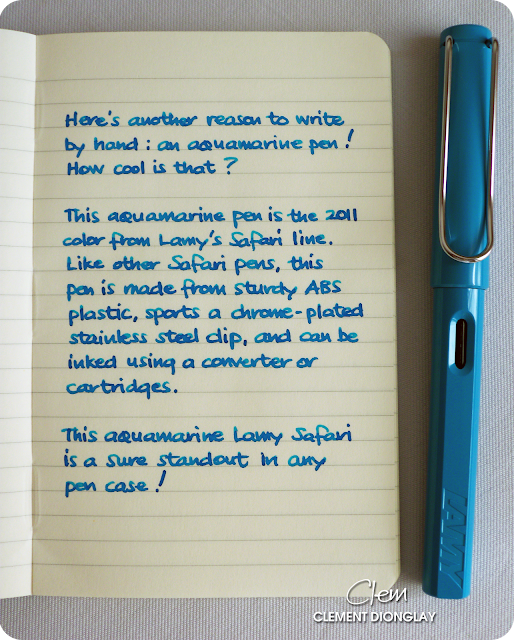 Here's another reason to write
by hand : an aquamarine pen !
How cool is that ?
This aquamarine pen is the 2011
color from Lamy's Safari line.
Like other Safari pens, this
pen is made from sturdy ABS
plastic, sports a chrome-plated
stainless steel clip, and can be
inked using a converter or
cartridges.
This aquamarine Lamy Safari
is a sure standout in any
pen case !
LAMY
Clem
CLEMENT DIONGLAY